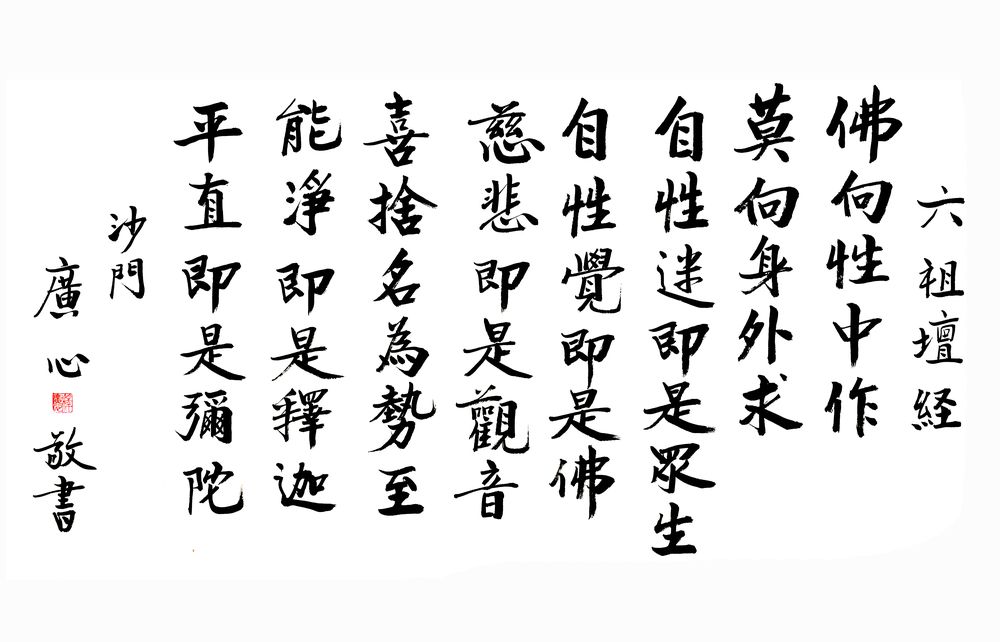 六祖壇経
佛向性中作
莫向身外求
自性迷即是眾生
自性覺即是佛
慈悲即是觀音
喜捨名為勢至
能淨即是釋迦
平直即是彌陀
沙門
廣心敬書